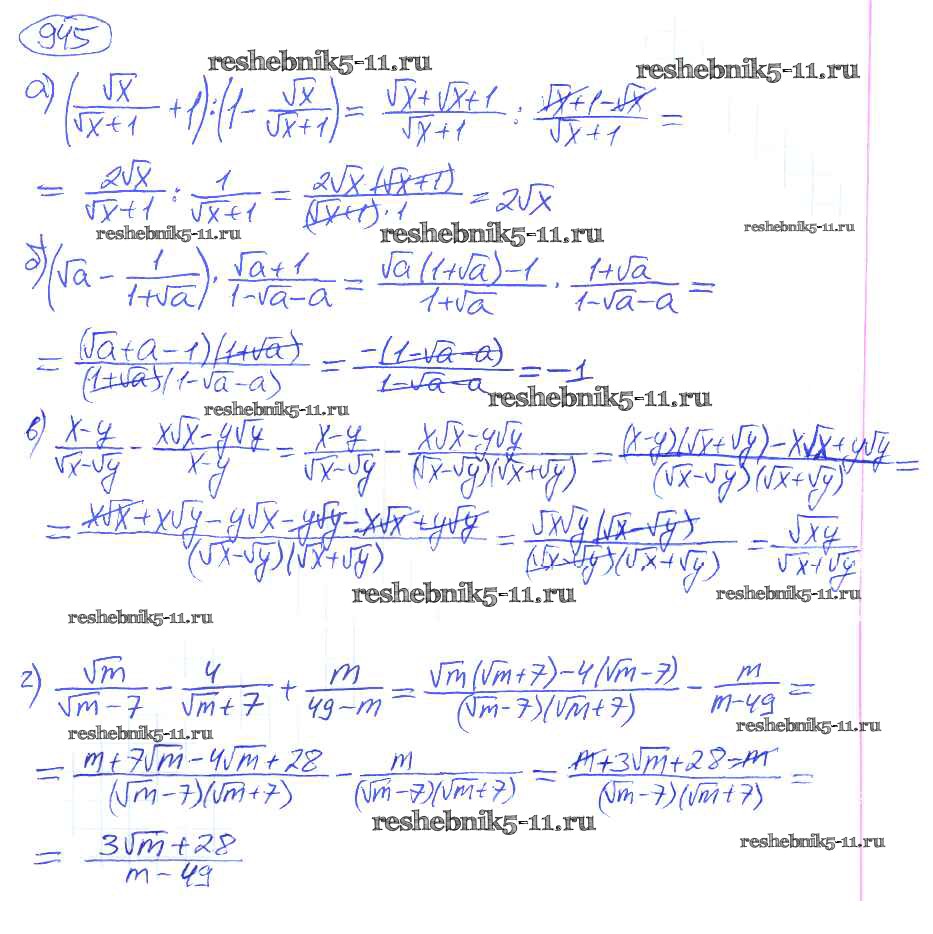 945
reshebnik5-11.ru reshebnik5-11.ru
а) (√x/(√x+1) + 1) : (1 - √x/(√x+1)) = (√x+√x+1)/(√x+1) : (√x+1-√x)/(√x+1) =
= 2√x/(√x+1) : 1/(√x+1) = 2√x·(√x+1)/((√x+1)·1) = 2√x
reshebnik5-11.ru reshebnik5-11.ru reshebnik5-11.ru
б) (√a - 1/(1+√a)) · (√a+1)/(1-√a-a) = (√a(1+√a)-1)/(1+√a) · (1+√a)/(1-√a-a) =
= (√a+a-1)(1+√a)/((1+√a)(1-√a-a)) = -(1-√a-a)/(1-√a-a) = -1
reshebnik5-11.ru reshebnik5-11.ru
в) (x-y)/(√x-√y) - (x√x-y√y)/(x-y) = (x-y)/(√x-√y) - (x√x-y√y)/((√x-√y)(√x+√y)) = ((x-y)(√x+√y)-x√x+y√y)/((√x-√y)(√x+√y)) =
= (x√x+x√y-y√x-y√y-x√x+y√y)/((√x-√y)(√x+√y)) = √x√y(√x-√y)/((√x-√y)(√x+√y)) = √xy/(√x+√y)
reshebnik5-11.ru reshebnik5-11.ru reshebnik5-11.ru
г) √m/(√m-7) - 4/(√m+7) + m/(49-m) = (√m(√m+7)-4(√m-7))/((√m-7)(√m+7)) - m/(m-49) =
reshebnik5-11.ru reshebnik5-11.ru
= (m+7√m-4√m+28)/((√m-7)(√m+7)) - m/((√m-7)(√m+7)) = (m+3√m+28-m)/((√m-7)(√m+7)) =
reshebnik5-11.ru reshebnik5-11.ru
= (3√m+28)/(m-49)